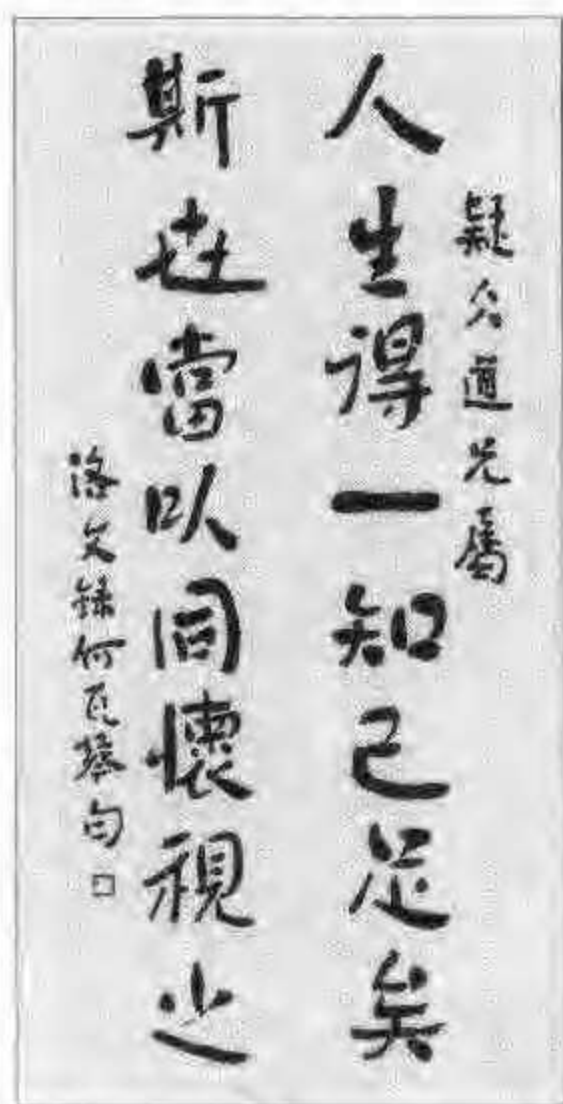 疑仌道兄屬
人生得一知己足矣
斯世當以同懷視之
洛文録何瓦琴句